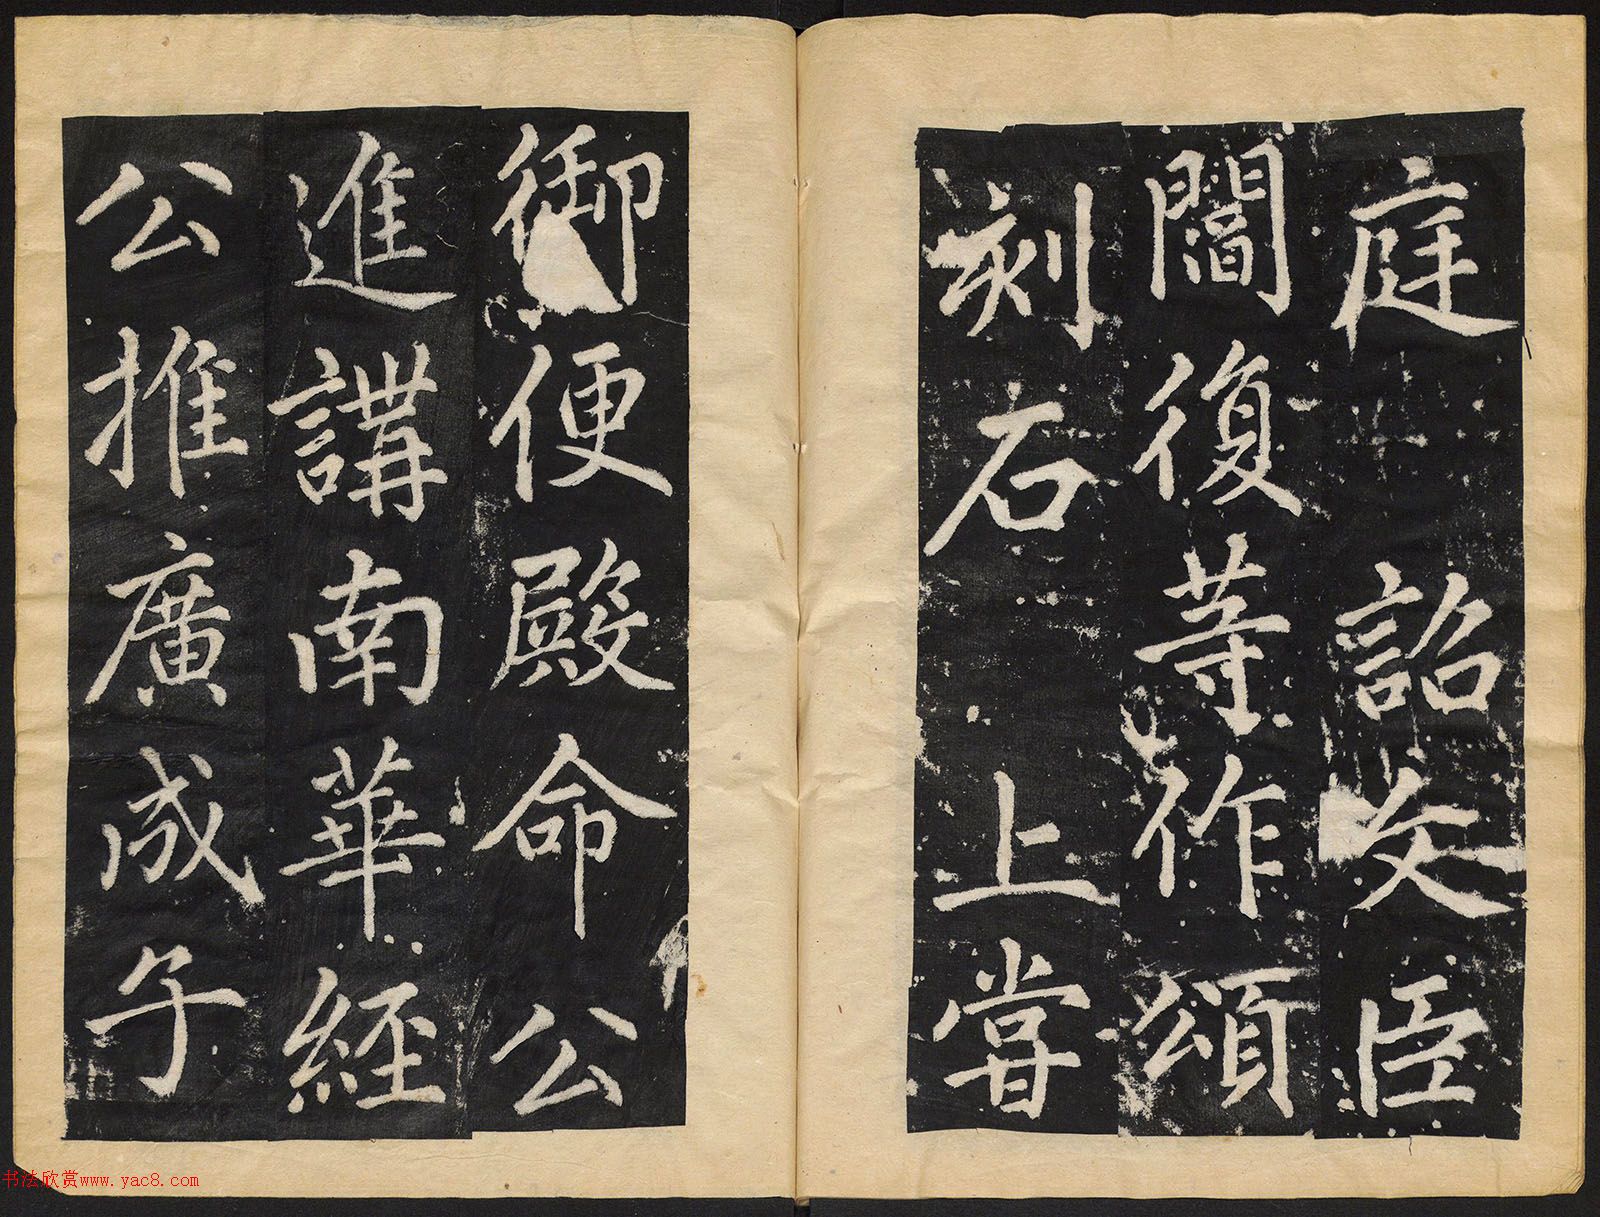 庭 詔文臣
閻復等作頌
刻石 上嘗
御便殿命公
進講南華經
公推廣成子
书法欣赏www.yac8.com